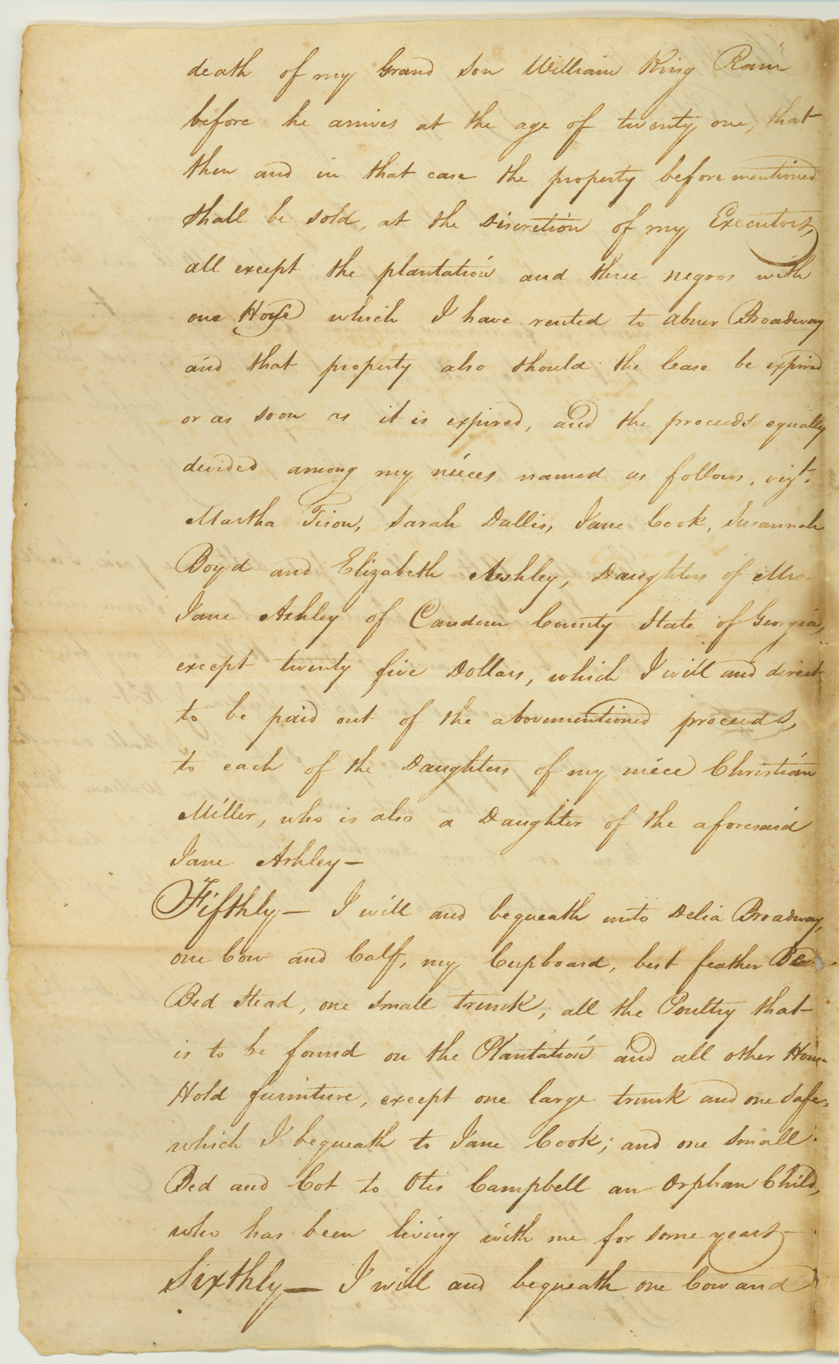 death of my Grand Son William King Rain
before he arrives at the age of twenty one, that
then and in that case the property before mentioned
shall be sold, at the discretion of my Executors,
all except the plantation and three negros with
one Horse which I have rented to Abner Broadway
and that property also should the lease be expired
or as soon as it is expired, and the proceeds equally
divided among my nieces named as follows, vizt.
Martha Tison, Sarah Dallis, Jane Cook, Susannah
Boyd and Elizabeth Ashley, Daughters of Mrs.
Jane Ashley of Camden County State of Georgia,
except twenty five Dollars, which I will and direct
to be paid out of the abovementioned proceeds,
to each of the Daughters of my niece Christian
Miller, who is also a Daughter of the aforesaid
Jane Ashley—
Fifthly— I will and bequeath unto Delia Broadway,
one Cow and Calf, my Cupboard, best feather Bed
Bed Stead, one small trunk, all the Poultry that
is to be found on the Plantation and all other House
Hold furniture, except one large trunk and one safe,
which I bequeath to Jane Cook; and one small
Bed and Cot to Otis Campbell an Orphan Child,
who has been living with me for some years—
Sixthly— I will and bequeath one Cow and